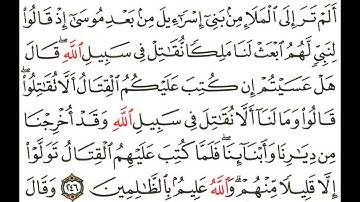 أَلَمْ تَرَ إِلَى ٱلْمَلَإِ مِنۢ بَنِىٓ إِسْرَٰٓءِيلَ مِنۢ بَعْدِ مُوسَىٰٓ إِذْ قَالُوا۟
لِنَبِىٍّ لَّهُمُ ٱبْعَثْ لَنَا مَلِكًا نُّقَٰتِلْ فِى سَبِيلِ ٱللَّهِ ۖ قَالَ
هَلْ عَسَيْتُمْ إِن كُتِبَ عَلَيْكُمُ ٱلْقِتَالُ أَلَّا تُقَٰتِلُوا۟ ۖ
قَالُوا۟ وَمَا لَنَآ أَلَّا نُقَٰتِلَ فِى سَبِيلِ ٱللَّهِ وَقَدْ أُخْرِجْنَا
مِن دِيَٰرِنَا وَأَبْنَآئِنَا ۖ فَلَمَّا كُتِبَ عَلَيْهِمُ ٱلْقِتَالُ تَوَلَّوْا۟
إِلَّا قَلِيلًا مِّنْهُمْ ۗ وَٱللَّهُ عَلِيمٌۢ بِٱلظَّٰلِمِينَ ٢٤٦ وَقَالَ